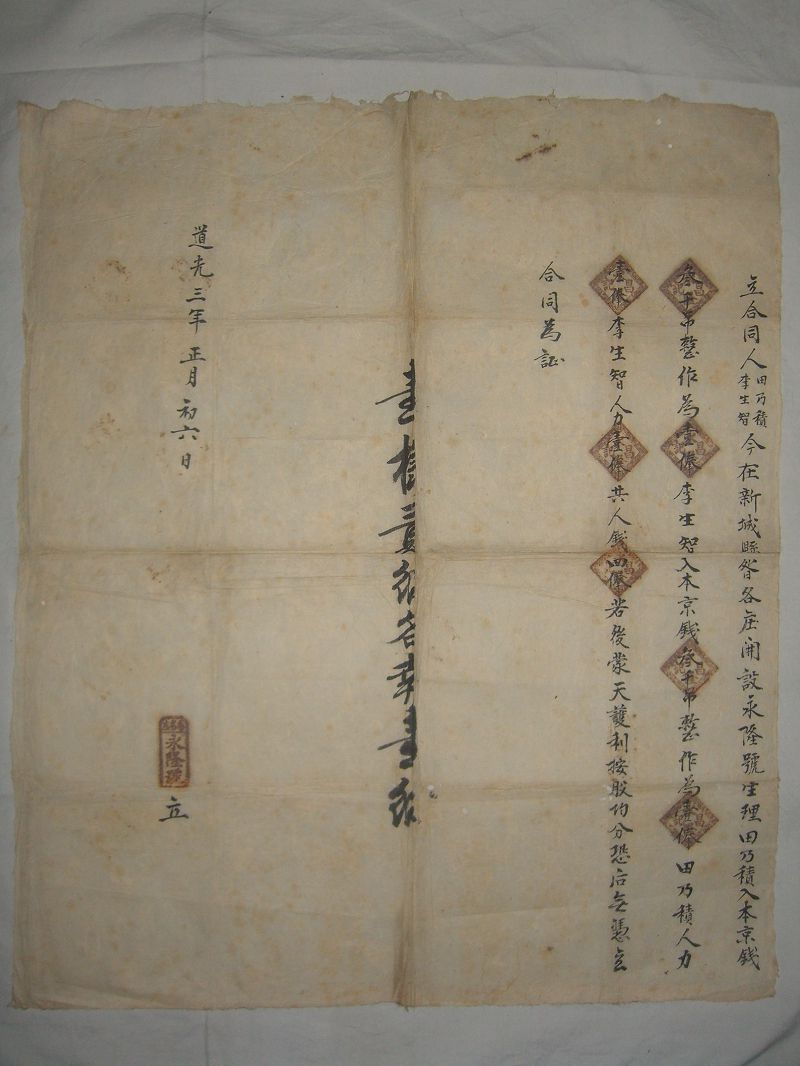 立合同人田乃積李生智今在新城縣昝各庄開設永隆號生理田乃積入本京錢
叁千吊整作為壹俸李生智入本京錢叁千吊整作為壹俸田乃積人力
壹俸李生智人力壹俸共人錢四俸若後蒙天護利按股均分恐后無憑立
合同為証
壹樣貳紙各執壹紙
道光三年正月初六日
永隆號
立